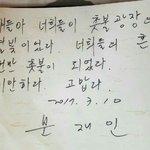 얘들아 너희들이 촛불 광장의
별빛이었다. 너희들의 혼
천만 촛불이 되었다.
미안하다. 고맙다.
2017. 3. 10
문 재 인